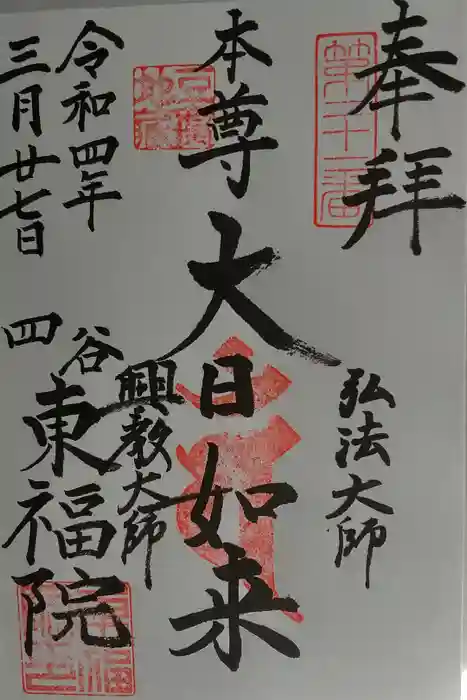 奉拝
第二十一番
本尊
豆腐地蔵
大日如来
弘法大師
興教大師
令和四年
三月廿七日
四谷
東福院